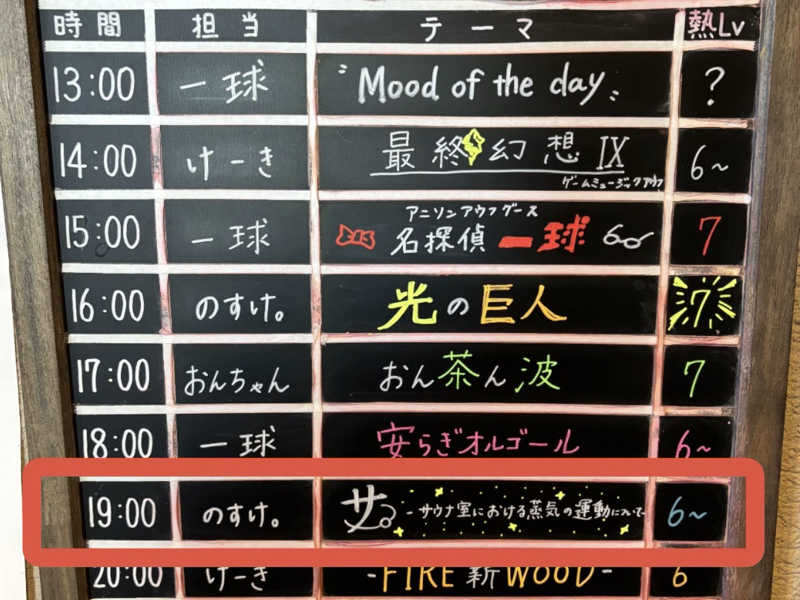 時間 担当 テーマ 熱Lv
13:00 一球 Mood of the day ?
14:00 けーき 最終幻想IX 6~
ゲームミュージックアウフ
アニソンアウフグース
15:00 一球 名探偵一球 7
16:00 のすけ。 光の巨人 7
17:00 おんちゃん おん茶ん波 7
18:00 一球 安らぎオルゴール 6~
19:00 のすけ。 サ。-サウナ室における蒸気の運動について- 6~
20:00 けーき -FIRE 薪 WOOD- 6